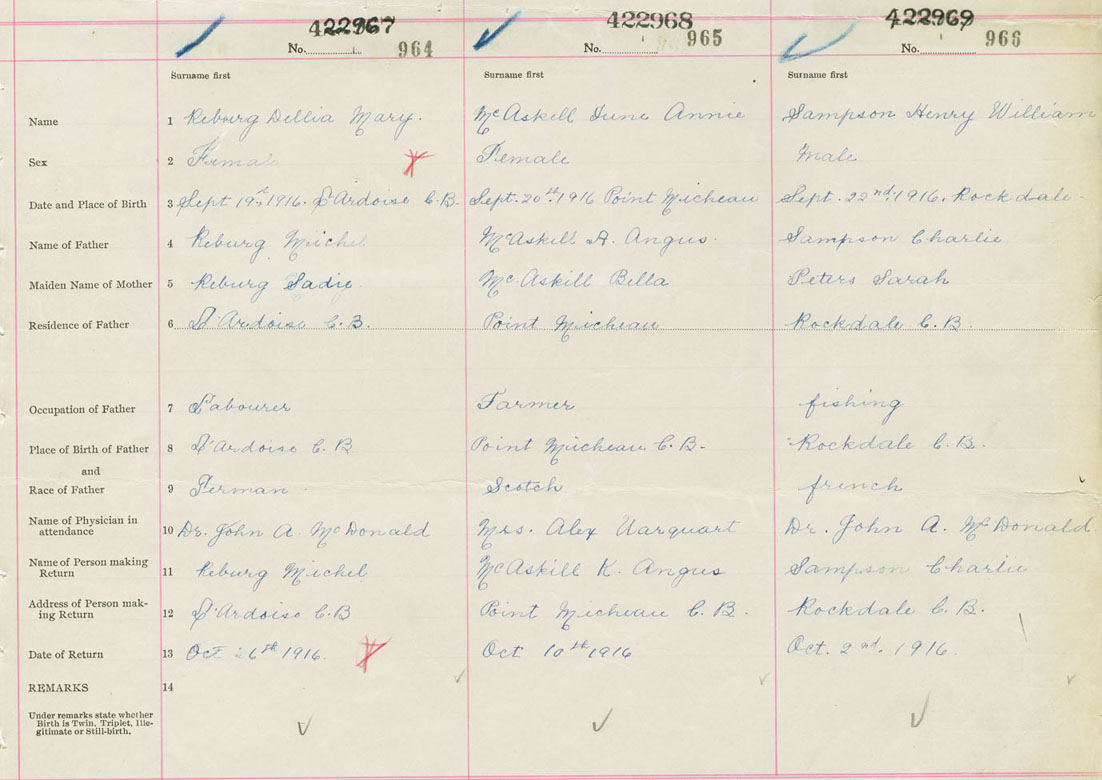 422967 422968 422969
No. 964 No. 965 No. 966
Surname first Surname first Surname first
Name 1 Reburg Dellia Mary. McAskill June Annie Sampson Henry William
Sex 2 Female Female Male
Date and Place of Birth 3 Sept 19st, 1916. L'Ardoise C.B. Sept. 20th 1916 Point Micheau Sept. 22nd, 1916. Rockdale.
Name of Father 4 Reburg Michel McAskill A. Angus. Sampson Charlie
Maiden Name of Mother 5 Reburg Sadie. McAskill Bella Peters Sarah
Residence of Father 6 L'Ardoise C.B. Point Micheau Rockdale C.B.
Occupation of Father 7 Labourer Farmer fishing
Place of Birth of Father 8 L'Ardoise C.B Point Micheau C.B. Rockdale C.B.
and
Race of Father 9 German Scotch french
Name of Physician in
attendance 10 Dr. John A. McDonald Mrs. Alex Uarquart Dr. John A. McDonald
Name of Person making
Return 11 Reburg Michel McAskill K. Angus Sampson Charlie
Address of Person mak-
ing Return 12 L'Ardoise C.B Point Micheau C.B. Rockdale C.B.
Date of Return 13 Oct 26th 1916. Oct 10th 1916 Oct. 2nd. 1916.
REMARKS 14
Under remarks state whether
Birth is Twin, Triplet, Ille-
gitimate or Still-birth.